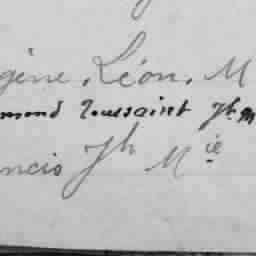 gène, Léon, M
mond Toussaint Jh M
ncis Jh Mie